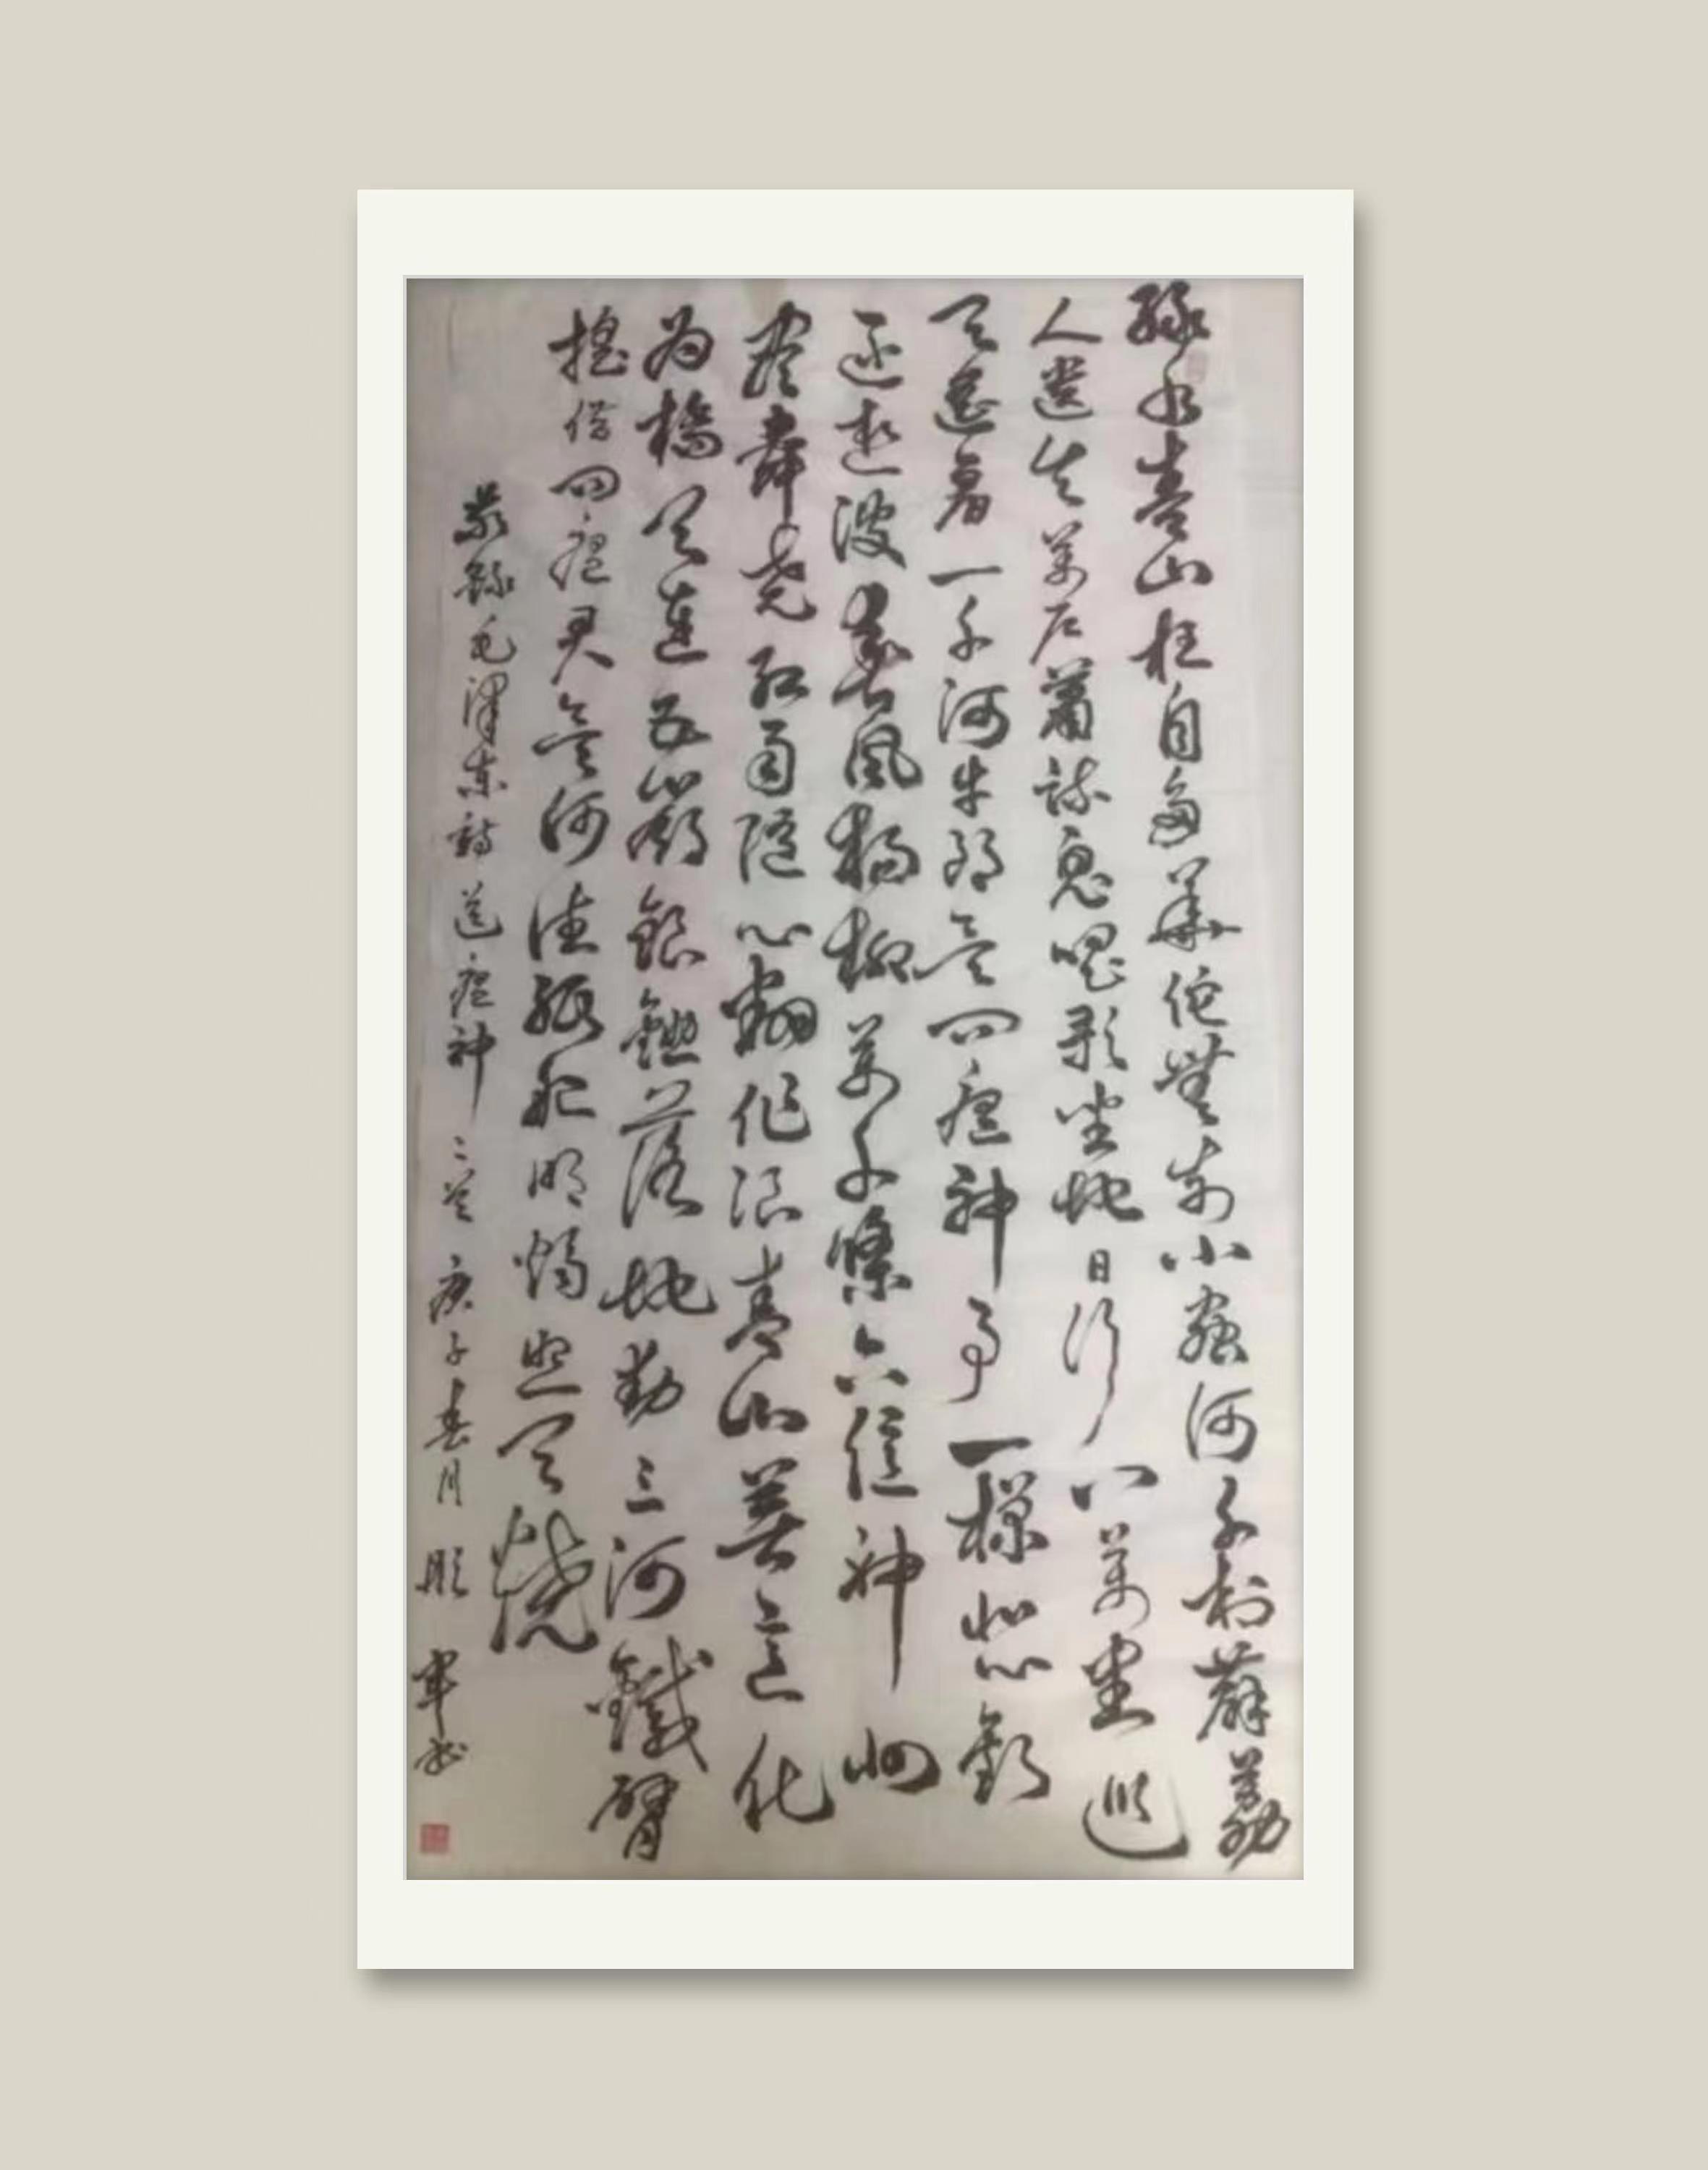 綠水青山枉自多華佗無奈小蟲何千村薜荔
人遺矢萬戶蕭疏鬼唱歌坐地日行八萬里巡
天遙看一千河牛郎欲問瘟神事一樣悲歡
逐逝波春風楊柳萬千條六億神州
盡舜堯紅雨隨心翻作浪青山著意化
為橋天連五嶺銀鋤落地動三河鐵臂
搖借問瘟君欲何往紙船明燭照天燒
恭錄毛澤東詩送瘟神二首庚子春月彤軍書